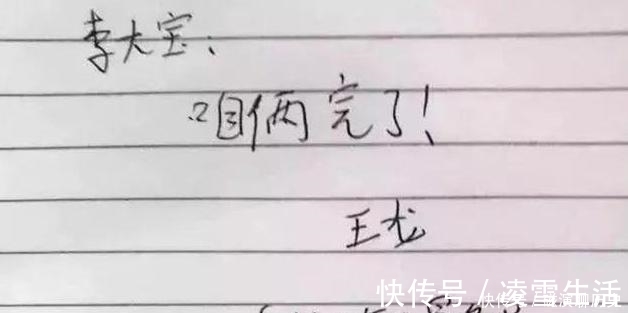 李大宝：
咱俩完了！
王龙
快传号 / 凌雪生活